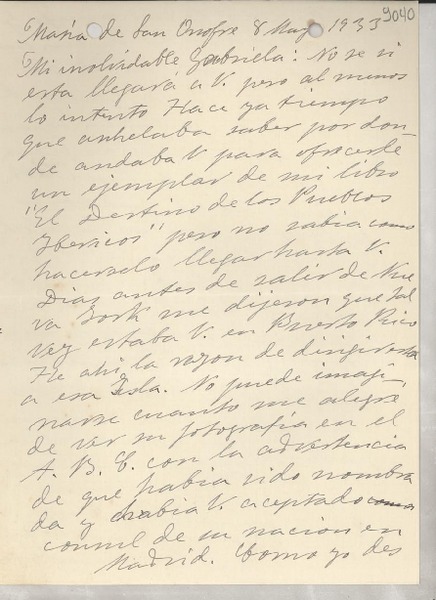 9040
María de San Onofre 8 Mayo 1933
Mi inolvidable Gabriela: No se si
esta llegará a V. pero al menos
lo intento Hace ya tiempo
que anhelaba saber por don-
de andaba V para ofrecerle
un ejemplar de mi libro
"El Destino de los Pueblos
Ibericos" pero no sabia como
hacerselo llegar hasta V.
Dias antes de salir de Nue
va York me dijeron que tal
vez estaba V. en Puerto Rico
He ahi la razon de dirigir esta
a esa Isla. No puede imagi-
narse cuanto me alegre
de ver su fotografía en el
A. B. C. con la advertencia
de que habia sido nombra
da y habia V. aceptado como
consul de su nacion en
Madrid. Como yo des